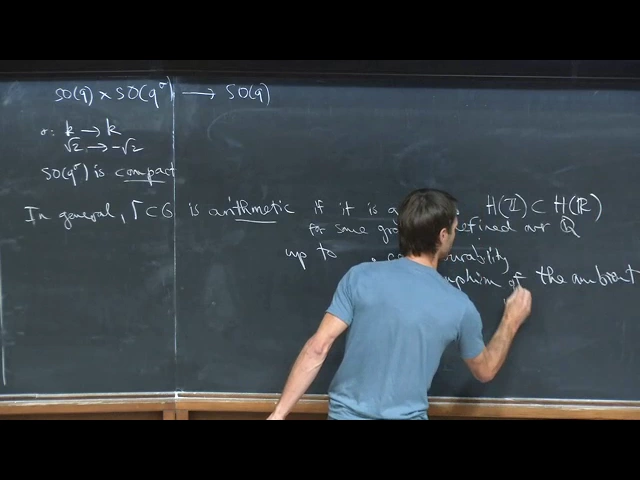 SO(q) × SO(q^σ) → SO(q)
σ: k → k
√2 → -√2
SO(q^σ) is compact
In general, Γ ⊂ G is arithmetic if it is H(ℤ) ⊂ H(ℝ)
for some defined over ℚ
up to
of the ambient